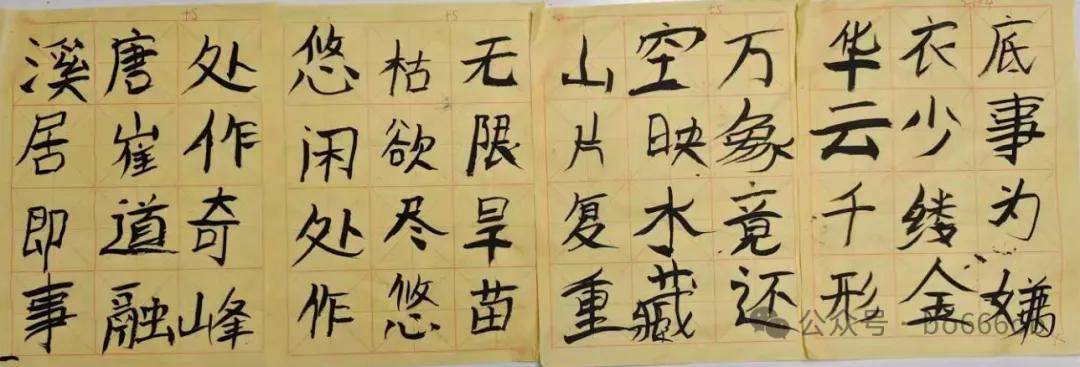 底事为嫌
衣少缕金
华云千形
万象竟还
空映水藏
山片复重
无限旱苗
枯欲尽悠
悠闲处作
处作奇峰
唐崔道融
溪居即事
公众号